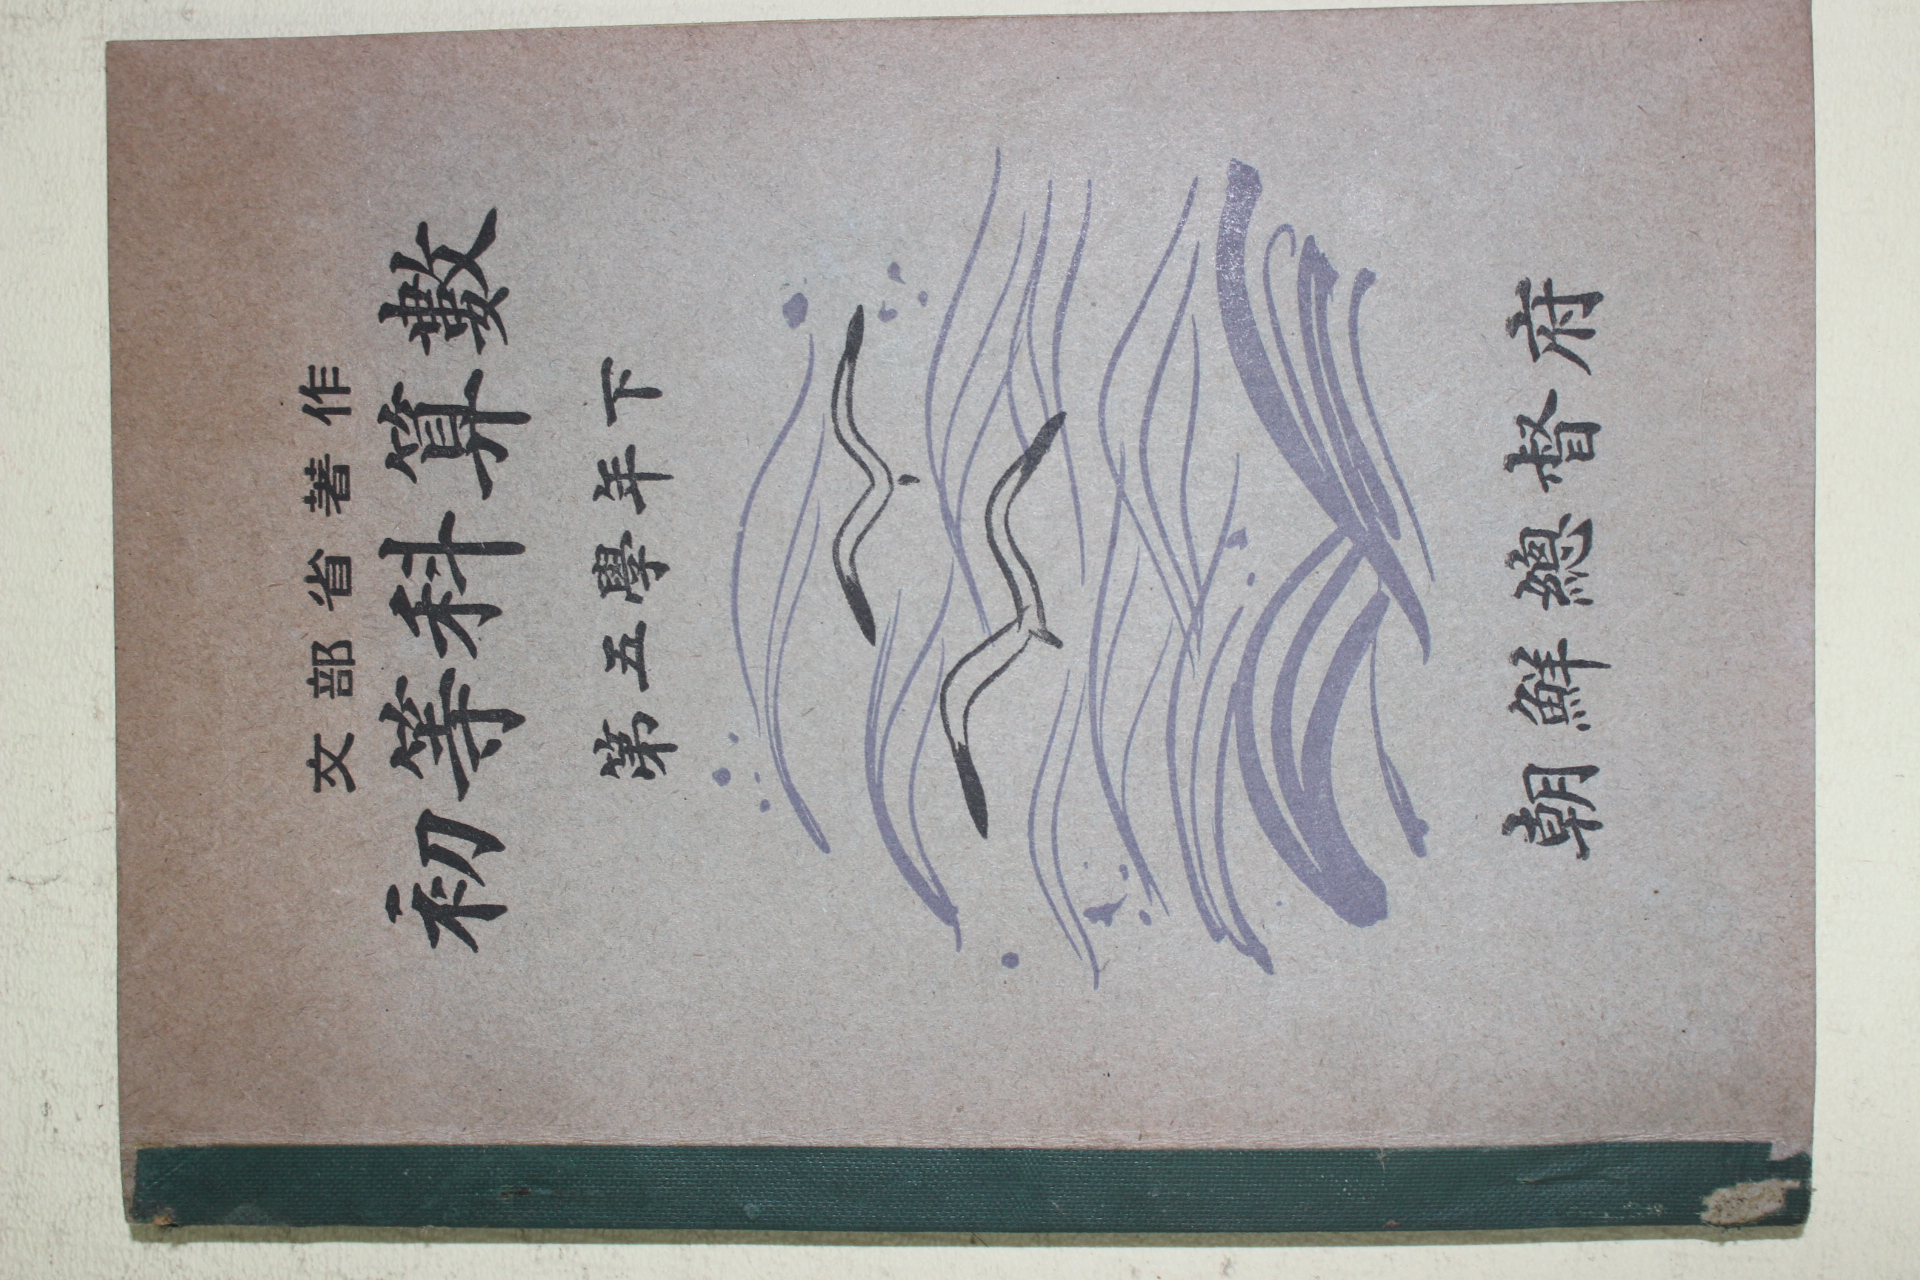 文部省著作
初等科算數
第五學年下
朝鮮總督府